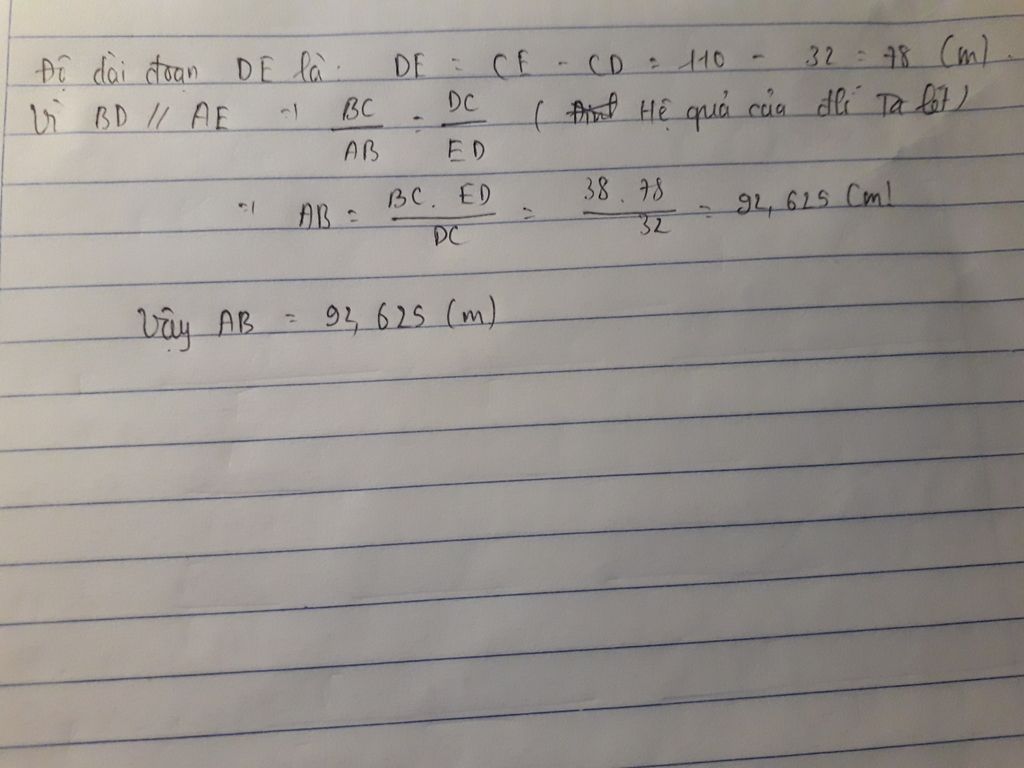 Độ dài đoạn DE là: DE = CE - CD = 110 - 32 = 78 (m).
Vì BD // AE => BC/AB = DC/ED ( Hệ quả của đlí Ta lét)
=> AB = BC. ED/DC = 38 . 78/32 = 92,625 (m)
Vậy AB = 92,625 (m)